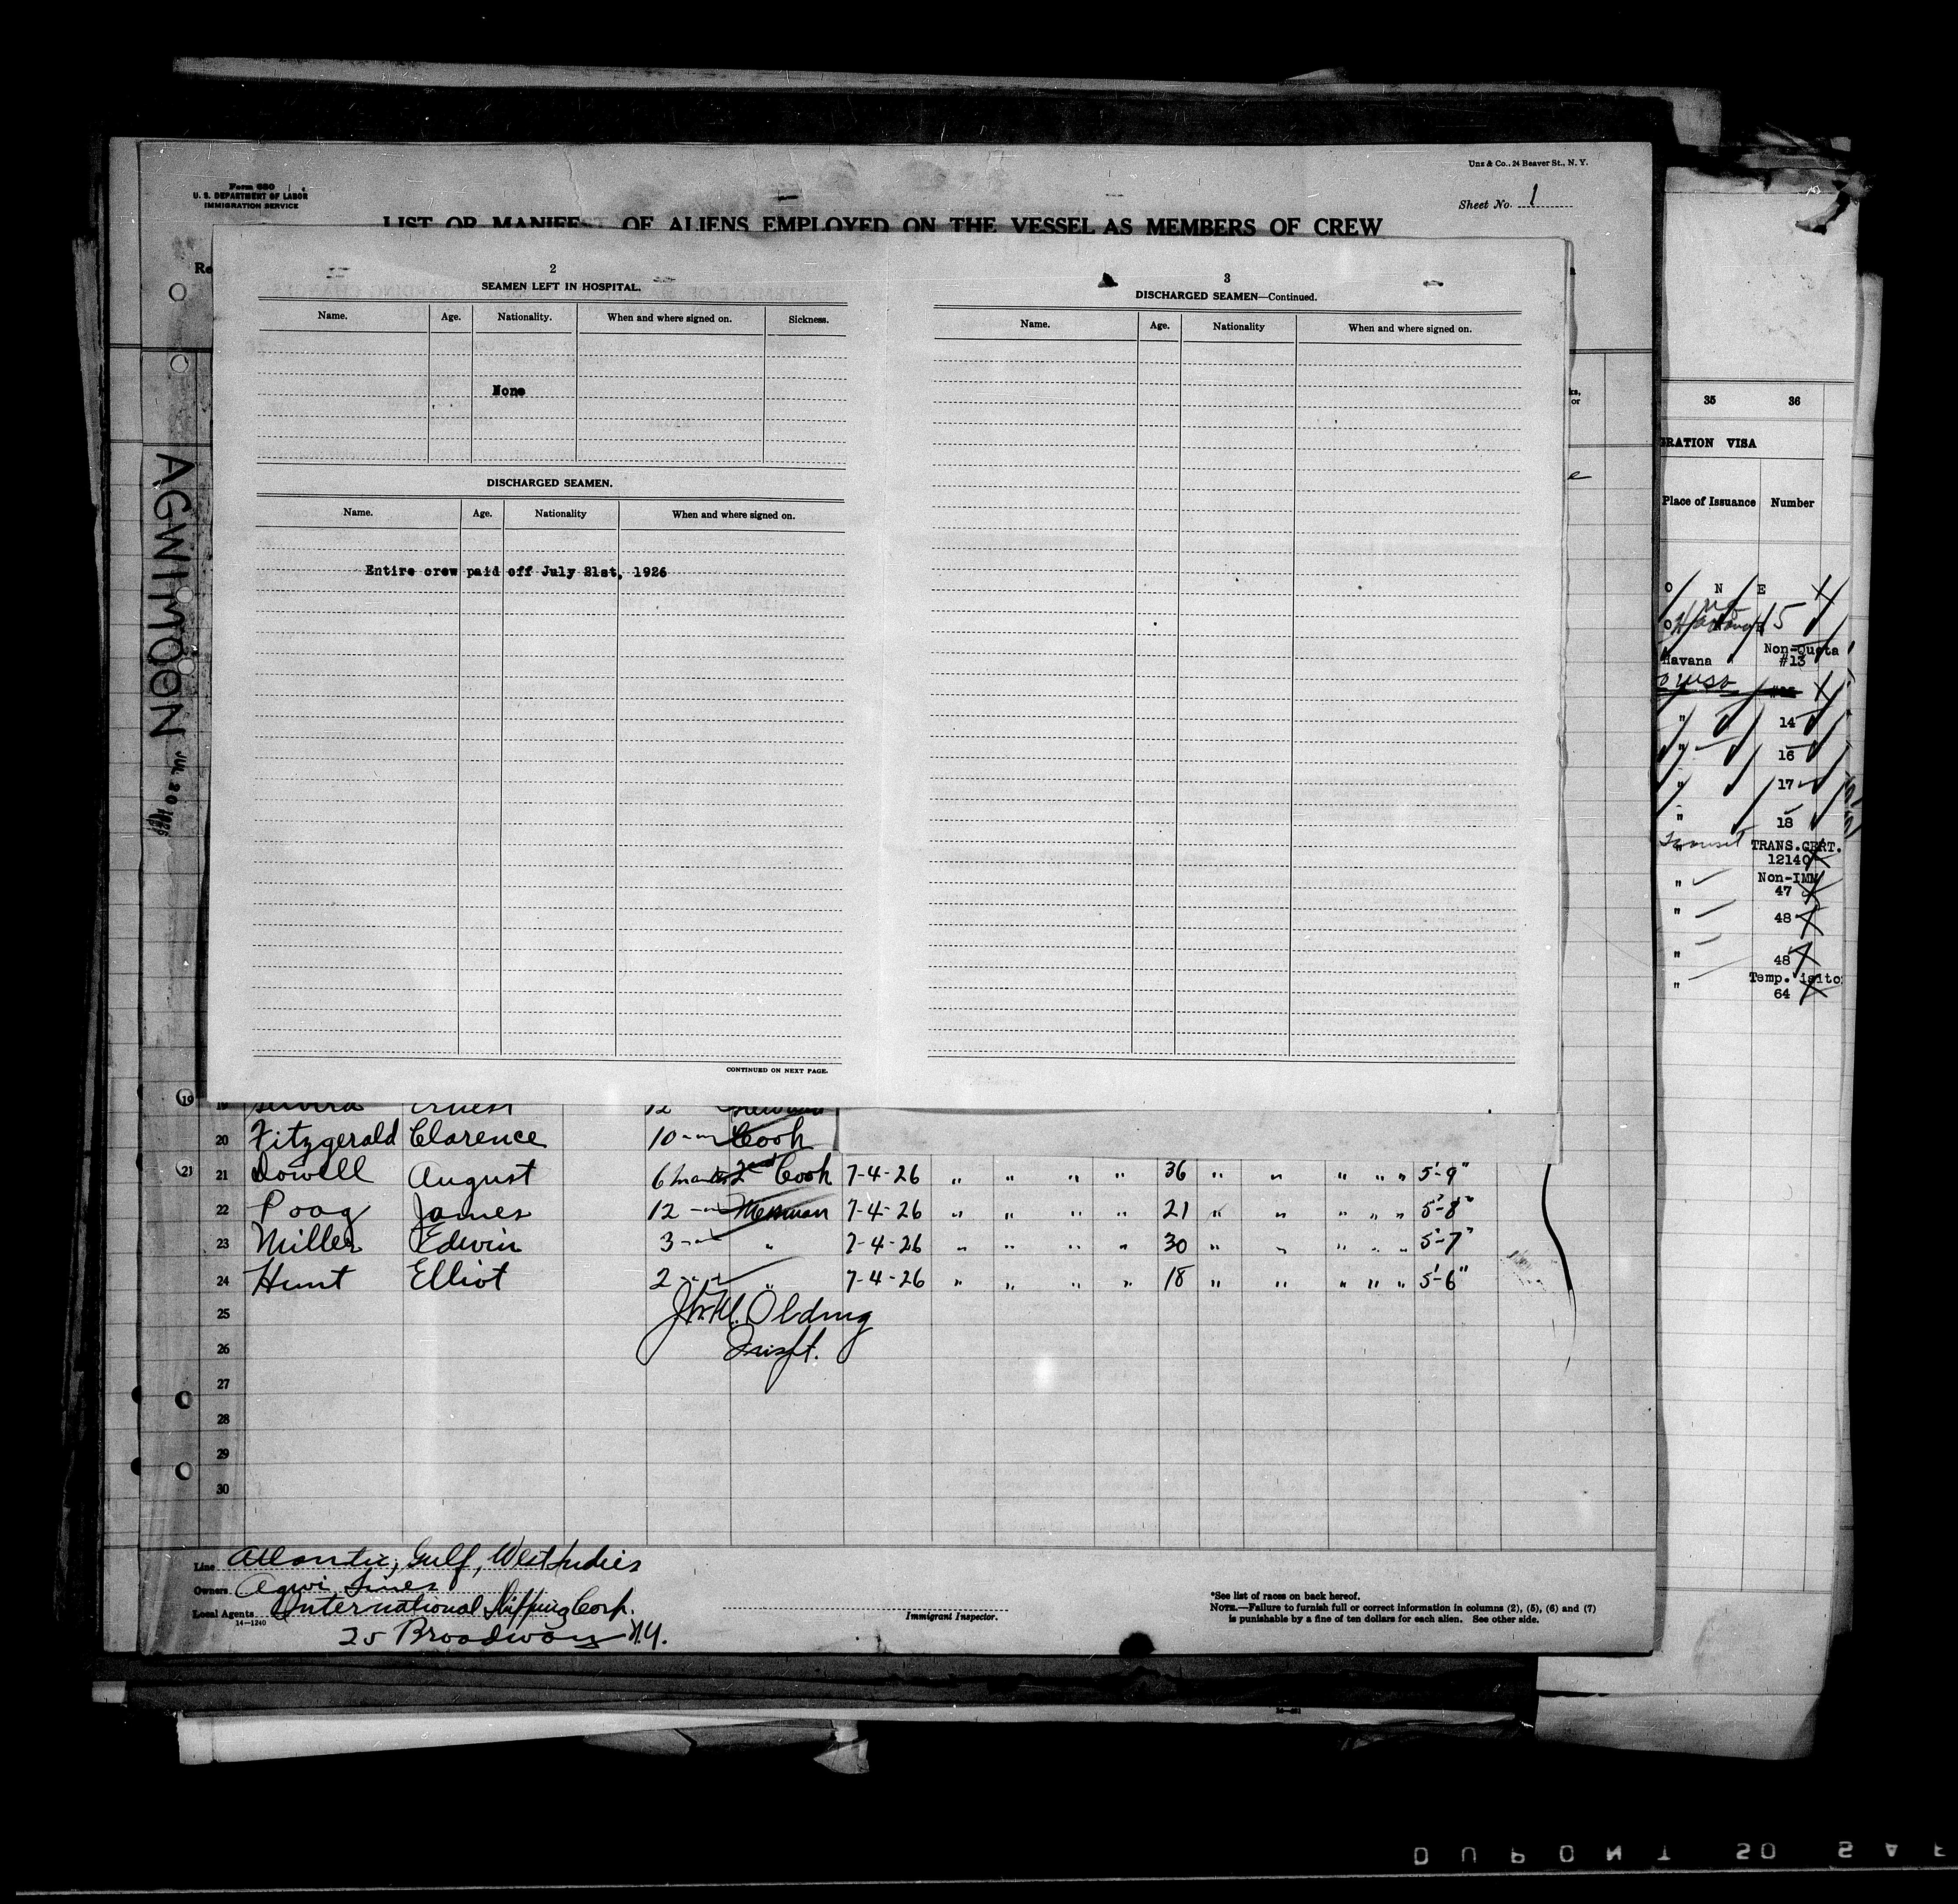 Unz & Co., 24 Beaver St., N. Y.
Form 680
U. S. DEPARTMENT OF LABOR
IMMIGRATION SERVICE
Sheet No. 1
LIST OR MANIFEST OF ALIENS EMPLOYED ON THE VESSEL AS MEMBERS OF CREW
AGWIMOON
JUL 20 1926
2
SEAMEN LEFT IN HOSPITAL.
Name. Age. Nationality. When and where signed on. Sickness.
None
DISCHARGED SEAMEN.
Name. Age. Nationality When and where signed on.
Entire crew paid off July 21st, 1926
CONTINUED ON NEXT PAGE.
3
DISCHARGED SEAMEN—Continued.
Name. Age. Nationality When and where signed on.
35 36
GRATION VISA
Place of Issuance Number
O N E
15
Non-Quota
Havana #13
" 14
" 16
" 17
" 18
Transit TRANS.CERT.
" 12140
Non-IMM
" 47
" 48
" 48
Temp.
" 64
19 Ernest 12
20 Fitzgerald Clarence 10 " Cook
21 Dowell August 6 months 2nd Cook 7-4-26 " " " " 36 " " " " " 5'-9"
22 Poag James 12 " Messman 7-4-26 " " " " 21 " " " " " 5'-8"
23 Miller Edwin 3 " " 7-4-26 " " " " 30 " " " " " 5'-7"
24 Hunt Elliot 2 " " 7-4-26 " " " " 18 " " " " " 5'-6"
25 Olding
26
27
28
29
30
Line Atlantic, Gulf, West Indies
Owners Agwi Lines
Local Agents International Shipping Corp.
14-1240
25 Broadway N.Y.
Immigrant Inspector.
*See list of races on back hereof.
NOTE.—Failure to furnish full or correct information in columns (2), (5), (6) and (7)
is punishable by a fine of ten dollars for each alien. See other side.
DUPONT SO SAF